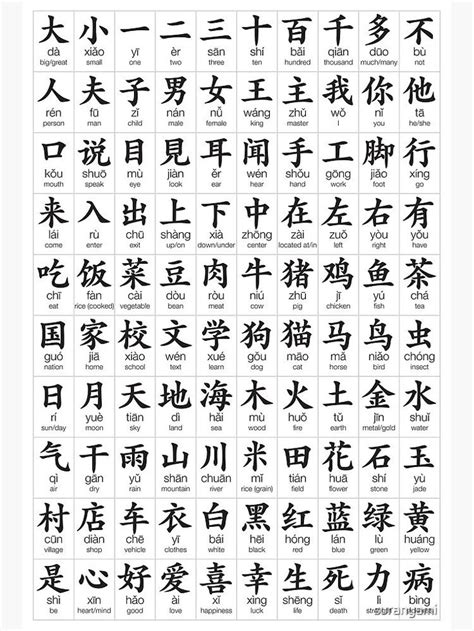 大 小 一 二 三 十 百 千 多 不
dà xiǎo yī èr sān shí bǎi qiān duō bù
big/great small one two three ten hundred thousand much/many not
人 夫 子 男 女 王 主 我 你 他
rén fū zǐ nán nǚ wáng zhǔ wǒ nǐ tā
person man child male female king master I you he/she
口 说 目 見 耳 闻 手 工 脚 行
kǒu shuō mù jiàn ěr wén shǒu gōng jiǎo xíng
mouth speak eye look ear hear hand work foot go
来 入 出 上 下 中 在 左 右 有
lái rù chū shàng xià zhōng zài zuǒ yòu yǒu
come enter exit up/on down/under center located at/in left right have
吃 饭 菜 豆 肉 牛 猪 鸡 鱼 茶
chī fàn cài dòu ròu niú zhū jī yú chá
eat rice (cooked) vegetable bean meat cow pig chicken fish tea
国 家 校 文 学 狗 猫 马 鸟 虫
guó jiā xiào wén xué gǒu māo mǎ niǎo chóng
nation home school text learn dog cat horse bird insect
日 月 天 地 海 木 火 土 金 水
rì yuè tiān dì hǎi mù huǒ tǔ jīn shuǐ
sun/day moon sky land sea wood fire earth metal/gold water
气 干 雨 山 川 米 田 花 石 玉
qì gān yǔ shān chuān mǐ tián huā shí yù
air dry rain mountain river rice (grain) field flower stone jade
村 店 车 衣 白 黑 红 蓝 绿 黄
cūn diàn chē yī bái hēi hóng lán lǜ huáng
village shop vehicle clothes white black red blue green yellow
是 心 好 爱 喜 幸 生 死 力 病
shì xīn hǎo ài xǐ xìng shēng sǐ lì bìng
is heart/mind good love happiness luck life death
surangami